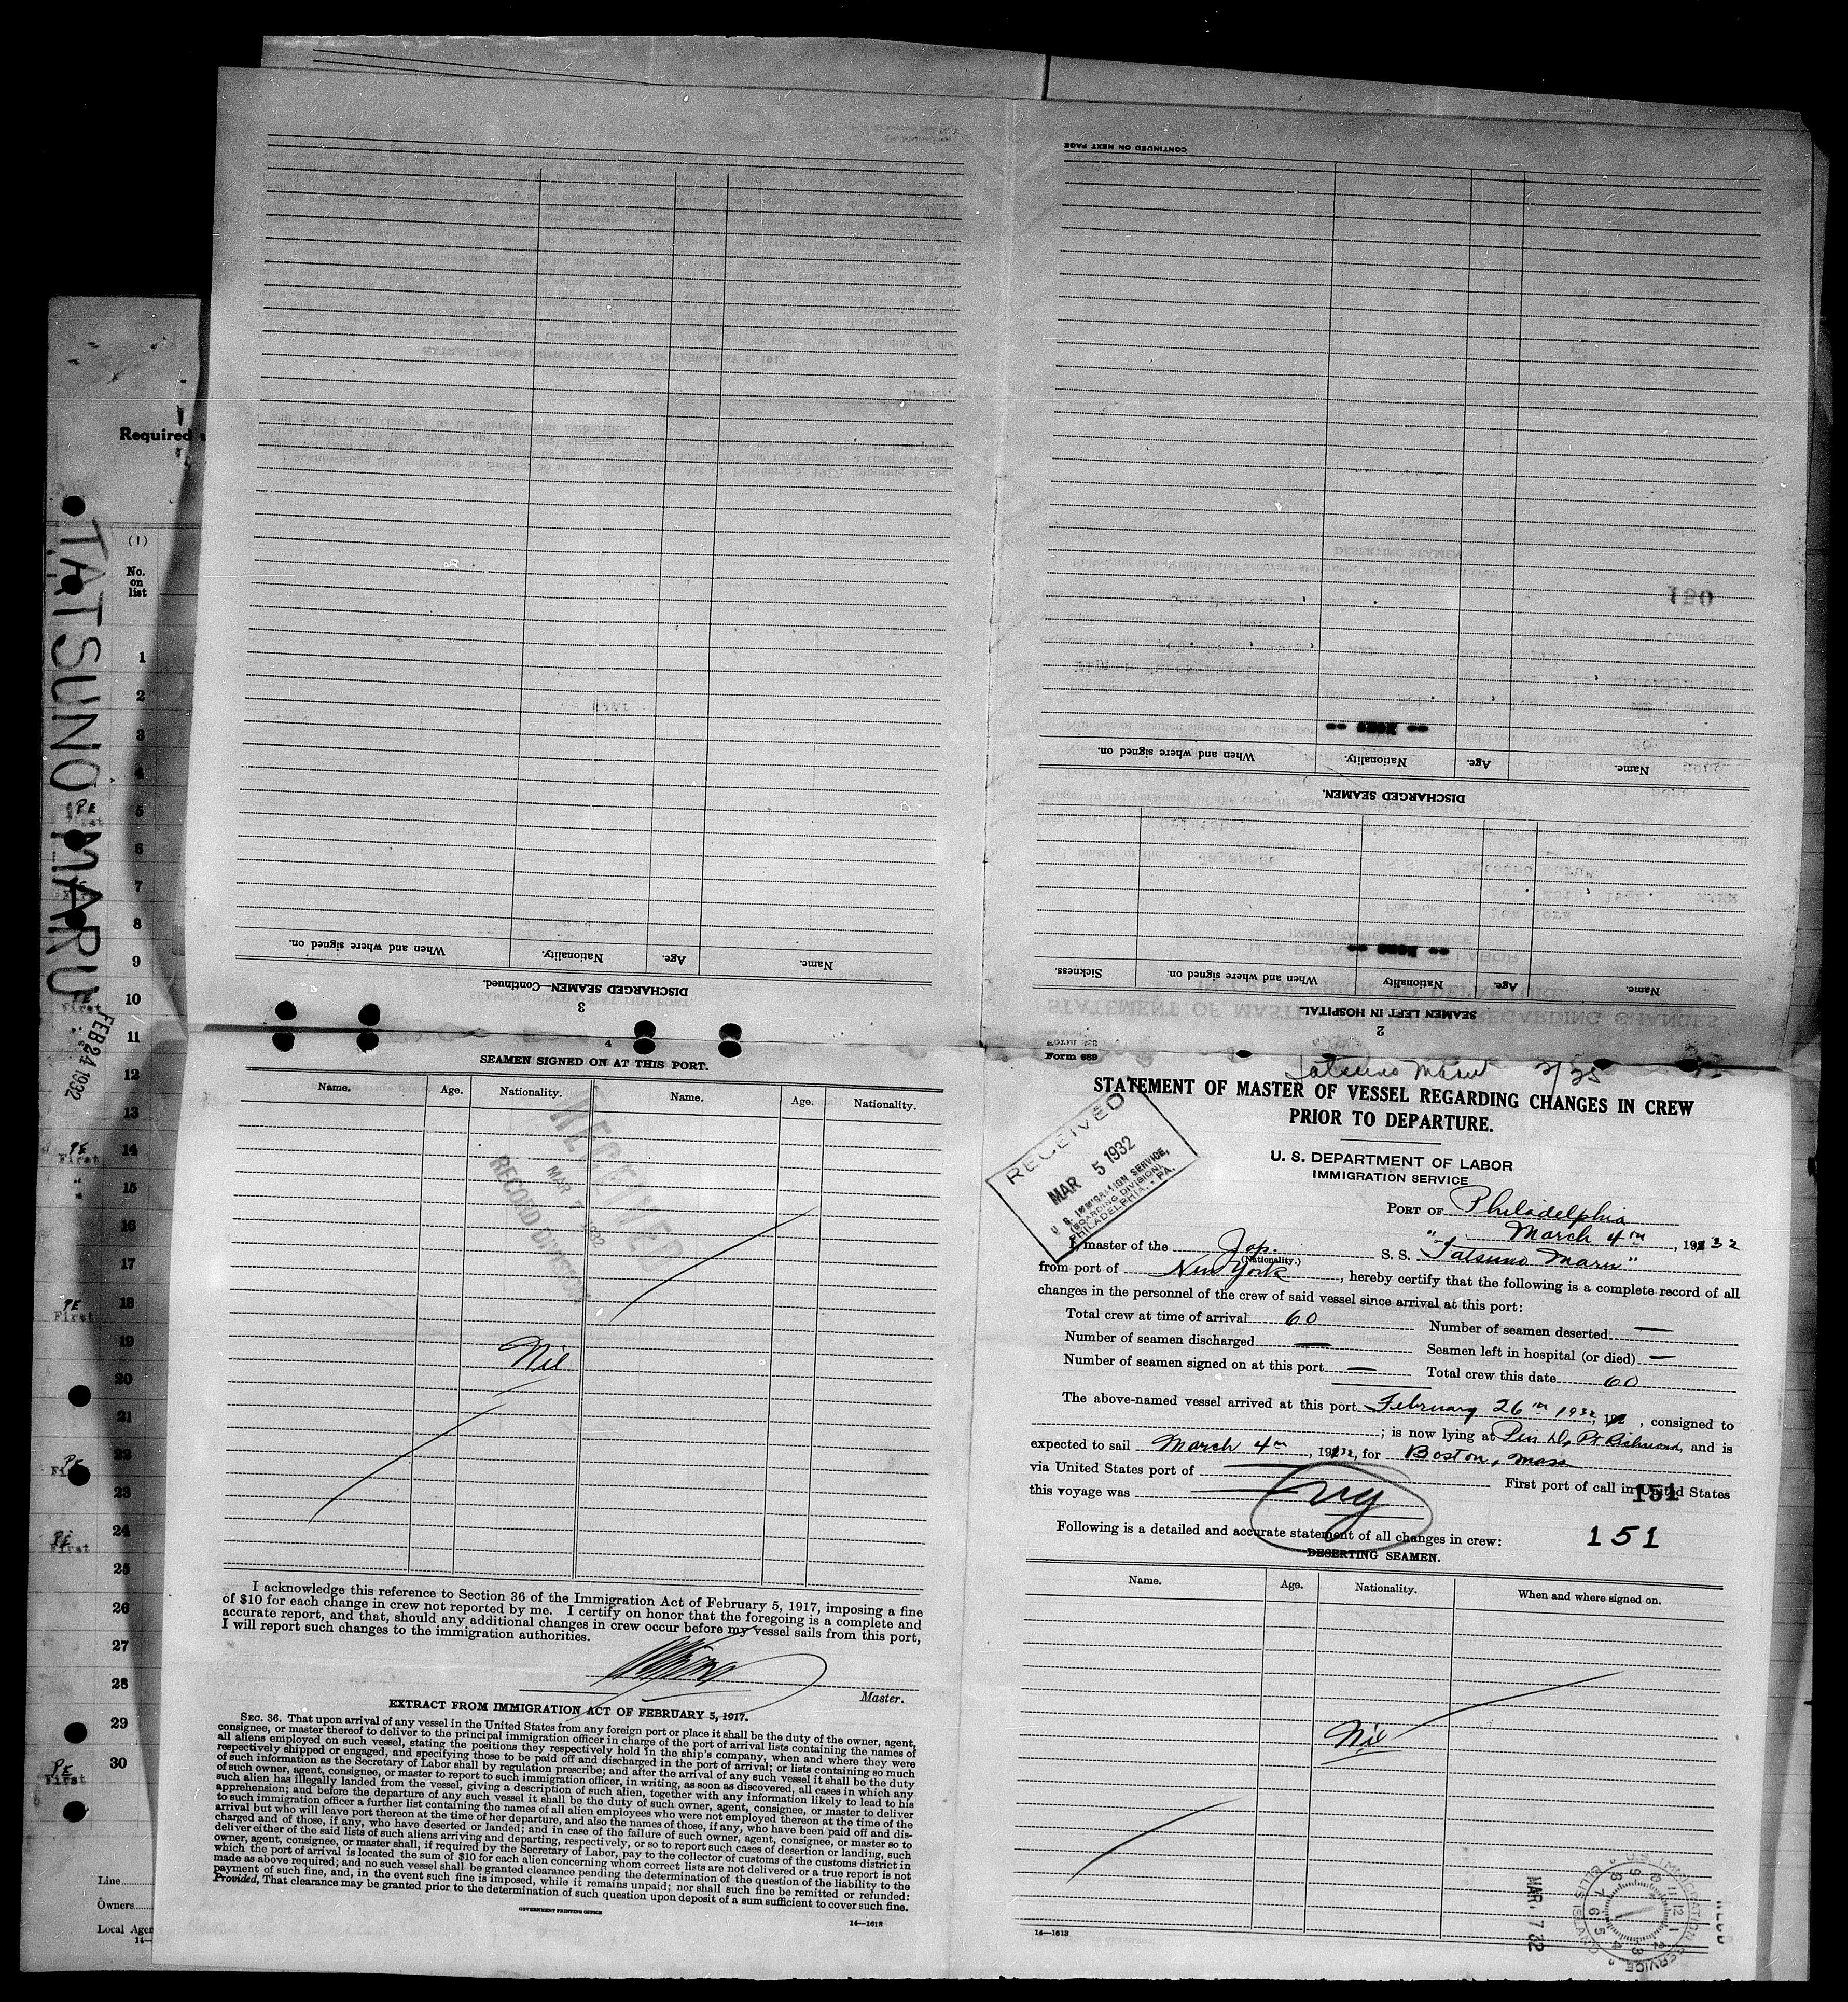 Required
(1)
No.
on
list
1
2
3
4
5
6
7
8
9
10
11
12
13
14
15
16
17
18
19
20
21
22
23
24
25
26
27
28
29
30
PE
First
TATSUNO MARU
FEB 24 1932
Line
Owners
Local Agen
14—
CONTINUED ON NEXT PAGE
150
-- None --
Name.
Age.
Nationality.
When and where signed on.
DISCHARGED SEAMEN.
-- None --
Name.
Age.
Nationality.
When and where signed on.
Sickness.
SEAMEN LEFT IN HOSPITAL
2
Name.
Age.
Nationality.
When and where signed on.
DISCHARGED SEAMEN—Continued.
3
4
SEAMEN SIGNED ON AT THIS PORT.
Name. Age. Nationality. Name. Age. Nationality.
RECEIVED
MAR 7 1932
RECORD DIVISION
Nil
I acknowledge this reference to Section 36 of the Immigration Act of February 5, 1917, imposing a fine
of $10 for each change in crew not reported by me. I certify on honor that the foregoing is a complete and
accurate report, and that, should any additional changes in crew occur before my vessel sails from this port,
I will report such changes to the immigration authorities.
Master.
EXTRACT FROM IMMIGRATION ACT OF FEBRUARY 5, 1917.
SEC. 36. That upon arrival of any vessel in the United States from any foreign port or place it shall be the duty of the owner, agent,
consignee, or master thereof to deliver to the principal immigration officer in charge of the port of arrival lists containing the names of
all aliens employed on such vessel, stating the positions they respectively hold in the ship's company, when and where they were
respectively shipped or engaged, and specifying those to be paid off and discharged in the port of arrival; or lists containing so much
of such information as the Secretary of Labor shall by regulation prescribe; and after the arrival of any such vessel it shall be the duty
of such owner, agent, consignee, or master to report to such immigration officer, in writing, as soon as discovered, all cases in which any
such alien has illegally landed from the vessel, giving a description of such alien, together with any information likely to lead to his
apprehension; and before the departure of any such vessel it shall be the duty of such owner, agent, consignee, or master to deliver
to such immigration officer a further list containing the names of all alien employees who were not employed thereon at the time of the
arrival but who will leave port thereon at the time of her departure, and also the names of those, if any, who have been paid off and dis-
charged and of those, if any, who have deserted or landed; and in case of the failure of such owner, agent, consignee, or master so to
deliver either of the said lists of such aliens arriving and departing, respectively, or so to report such cases of desertion or landing, such
owner, agent, consignee, or master shall, if required by the Secretary of Labor, pay to the collector of customs of the customs district in
which the port of arrival is located the sum of $10 for each alien concerning whom correct lists are not delivered or a true report is not
made as above required; and no such vessel shall be granted clearance pending the determination of the question of the liability to the
payment of such fine, and, in the event such fine is imposed, while it remains unpaid; nor shall such fine be remitted or refunded:
Provided, That clearance may be granted prior to the determination of such question upon deposit of a sum sufficient to cover such fine.
GOVERNMENT PRINTING OFFICE
14—1613
Form 689
Tatsuno Maru 2/25
STATEMENT OF MASTER OF VESSEL REGARDING CHANGES IN CREW
PRIOR TO DEPARTURE.
U. S. DEPARTMENT OF LABOR
IMMIGRATION SERVICE
RECEIVED
MAR 5 1932
U. S. IMMIGRATION SERVICE,
(BOARDING DIVISION)
PHILADELPHIA, - PA.
PORT OF Philadelphia
March 4th, 1932
I, master of the Jap. S. S. "Tatsuno Maru"
(Nationality.)
from port of New York, hereby certify that the following is a complete record of all
changes in the personnel of the crew of said vessel since arrival at this port:
Total crew at time of arrival 60 Number of seamen deserted —
Number of seamen discharged — Seamen left in hospital (or died) —
Number of seamen signed on at this port — Total crew this date 60
The above-named vessel arrived at this port February 26th 1932, 192 , consigned to
; is now lying at Pier D, Pt Richmond, and is
expected to sail March 4th, 1932, for Boston, Mass
via United States port of First port of call in United States
this voyage was
151
Following is a detailed and accurate statement of all changes in crew:
151
DESERTING SEAMEN.
Name. Age. Nationality. When and where signed on.
Nil
14—1613
MAR 7 32
U.S. IMMIGRATION SERVICE
ELLIS ISLAND